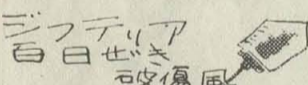 ジフテリア
百日ぜき
破傷風